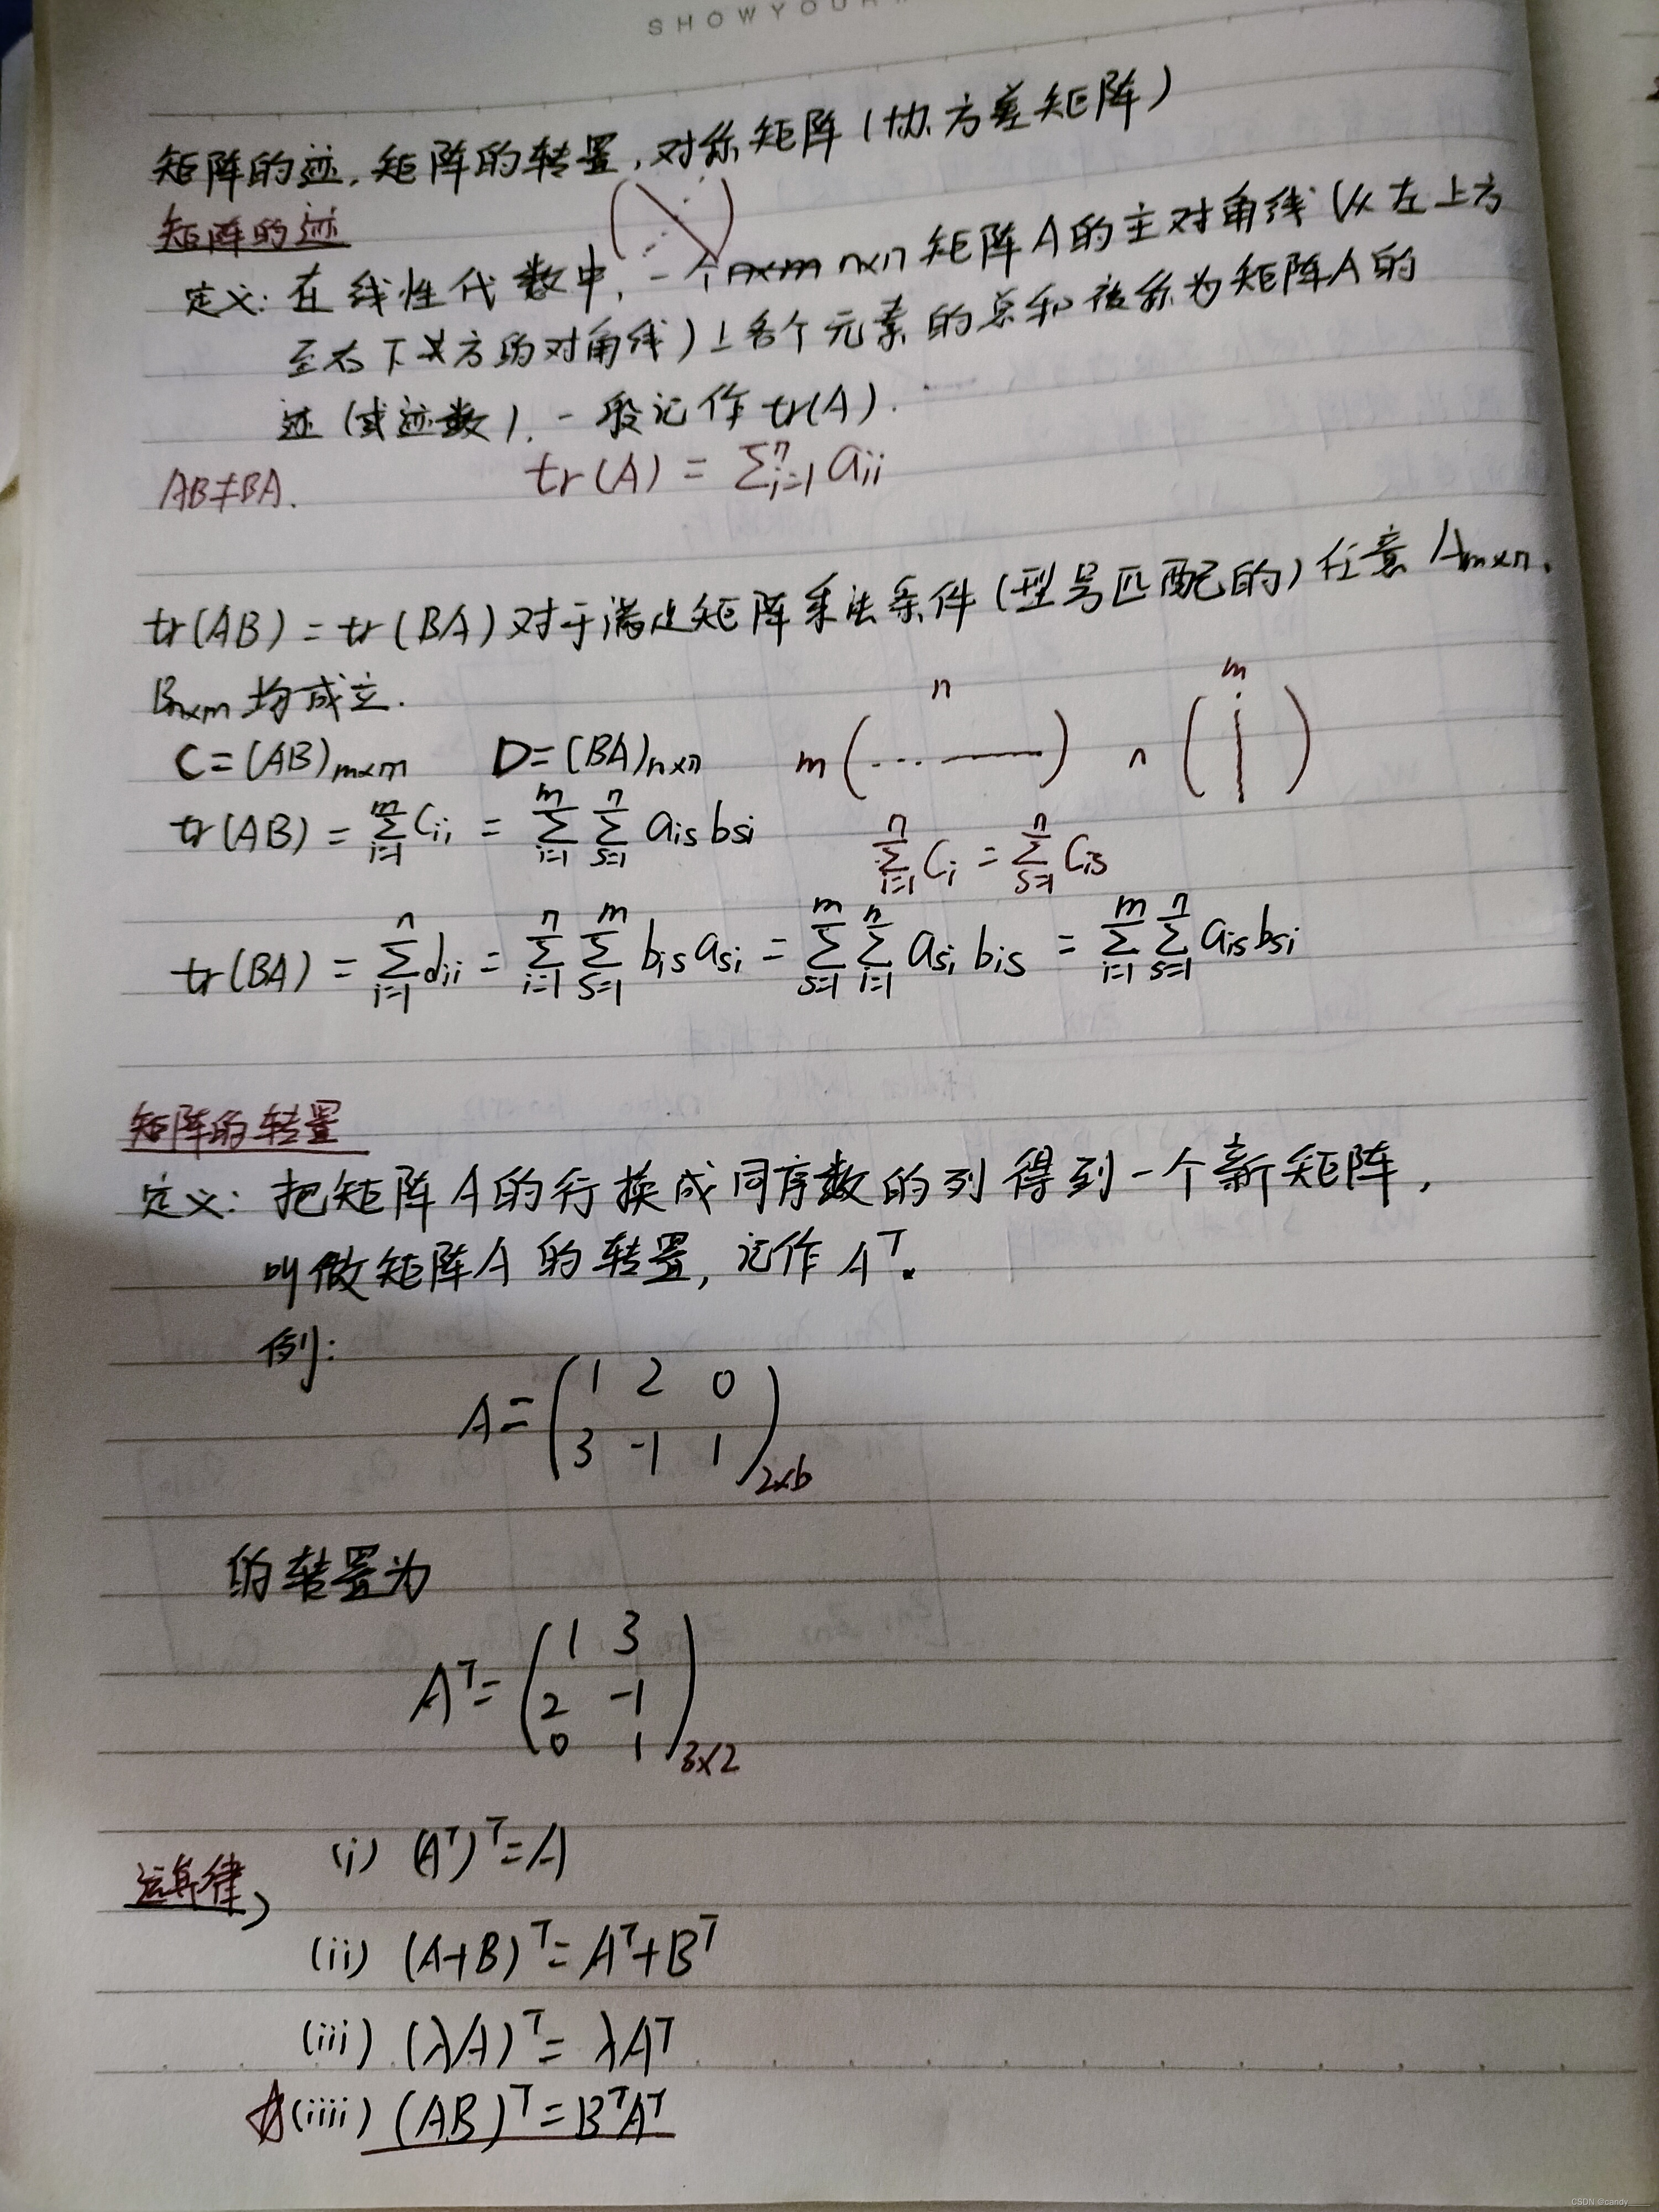 SHOWYOUR
矩阵的迹,矩阵的转置,对称矩阵(协方差矩阵)
矩阵的迹
定义:在线性代数中,一个n×m n×n矩阵A的主对角线(从左上方
至右下方的对角线)上各个元素的总和被称为矩阵A的
迹(或迹数),一般记作tr(A).
AB≠BA. tr(A) = Σⁿᵢ₌₁ aᵢᵢ
tr(AB) = tr(BA) 对于满足矩阵乘法条件(型号匹配的)任意 Aₘₓₙ,
Bₙₓₘ 均成立.
n m
C=(AB)ₘₓₘ D=(BA)ₙₓₙ m(… —) n( )
tr(AB) = Σᵐᵢ₌₁ cᵢᵢ = Σᵐᵢ₌₁ Σⁿₛ₌₁ aᵢₛ bₛᵢ Σⁿᵢ₌₁ Cᵢ = Σⁿₛ₌₁ Cᵢₛ
tr(BA) = Σⁿᵢ₌₁ dᵢᵢ = Σⁿᵢ₌₁ Σᵐₛ₌₁ bᵢₛ aₛᵢ = Σᵐₛ₌₁ Σⁿᵢ₌₁ aₛᵢ bᵢₛ = Σᵐᵢ₌₁ Σⁿₛ₌₁ aᵢₛ bₛᵢ
矩阵的转置
定义:把矩阵A的行换成同序数的列得到一个新矩阵,
叫做矩阵A的转置,记作Aᵀ.
例:
1 2 0
A=
3 -1 1
2×b
的转置为
1 3
Aᵀ= 2 -1
0 1
3×2
(i) (Aᵀ)ᵀ=A
运算律,
(ii) (A+B)ᵀ=Aᵀ+Bᵀ
(iii) (λA)ᵀ= λAᵀ
☆(iiii) (AB)ᵀ=BᵀAᵀ
CSDN @candy____